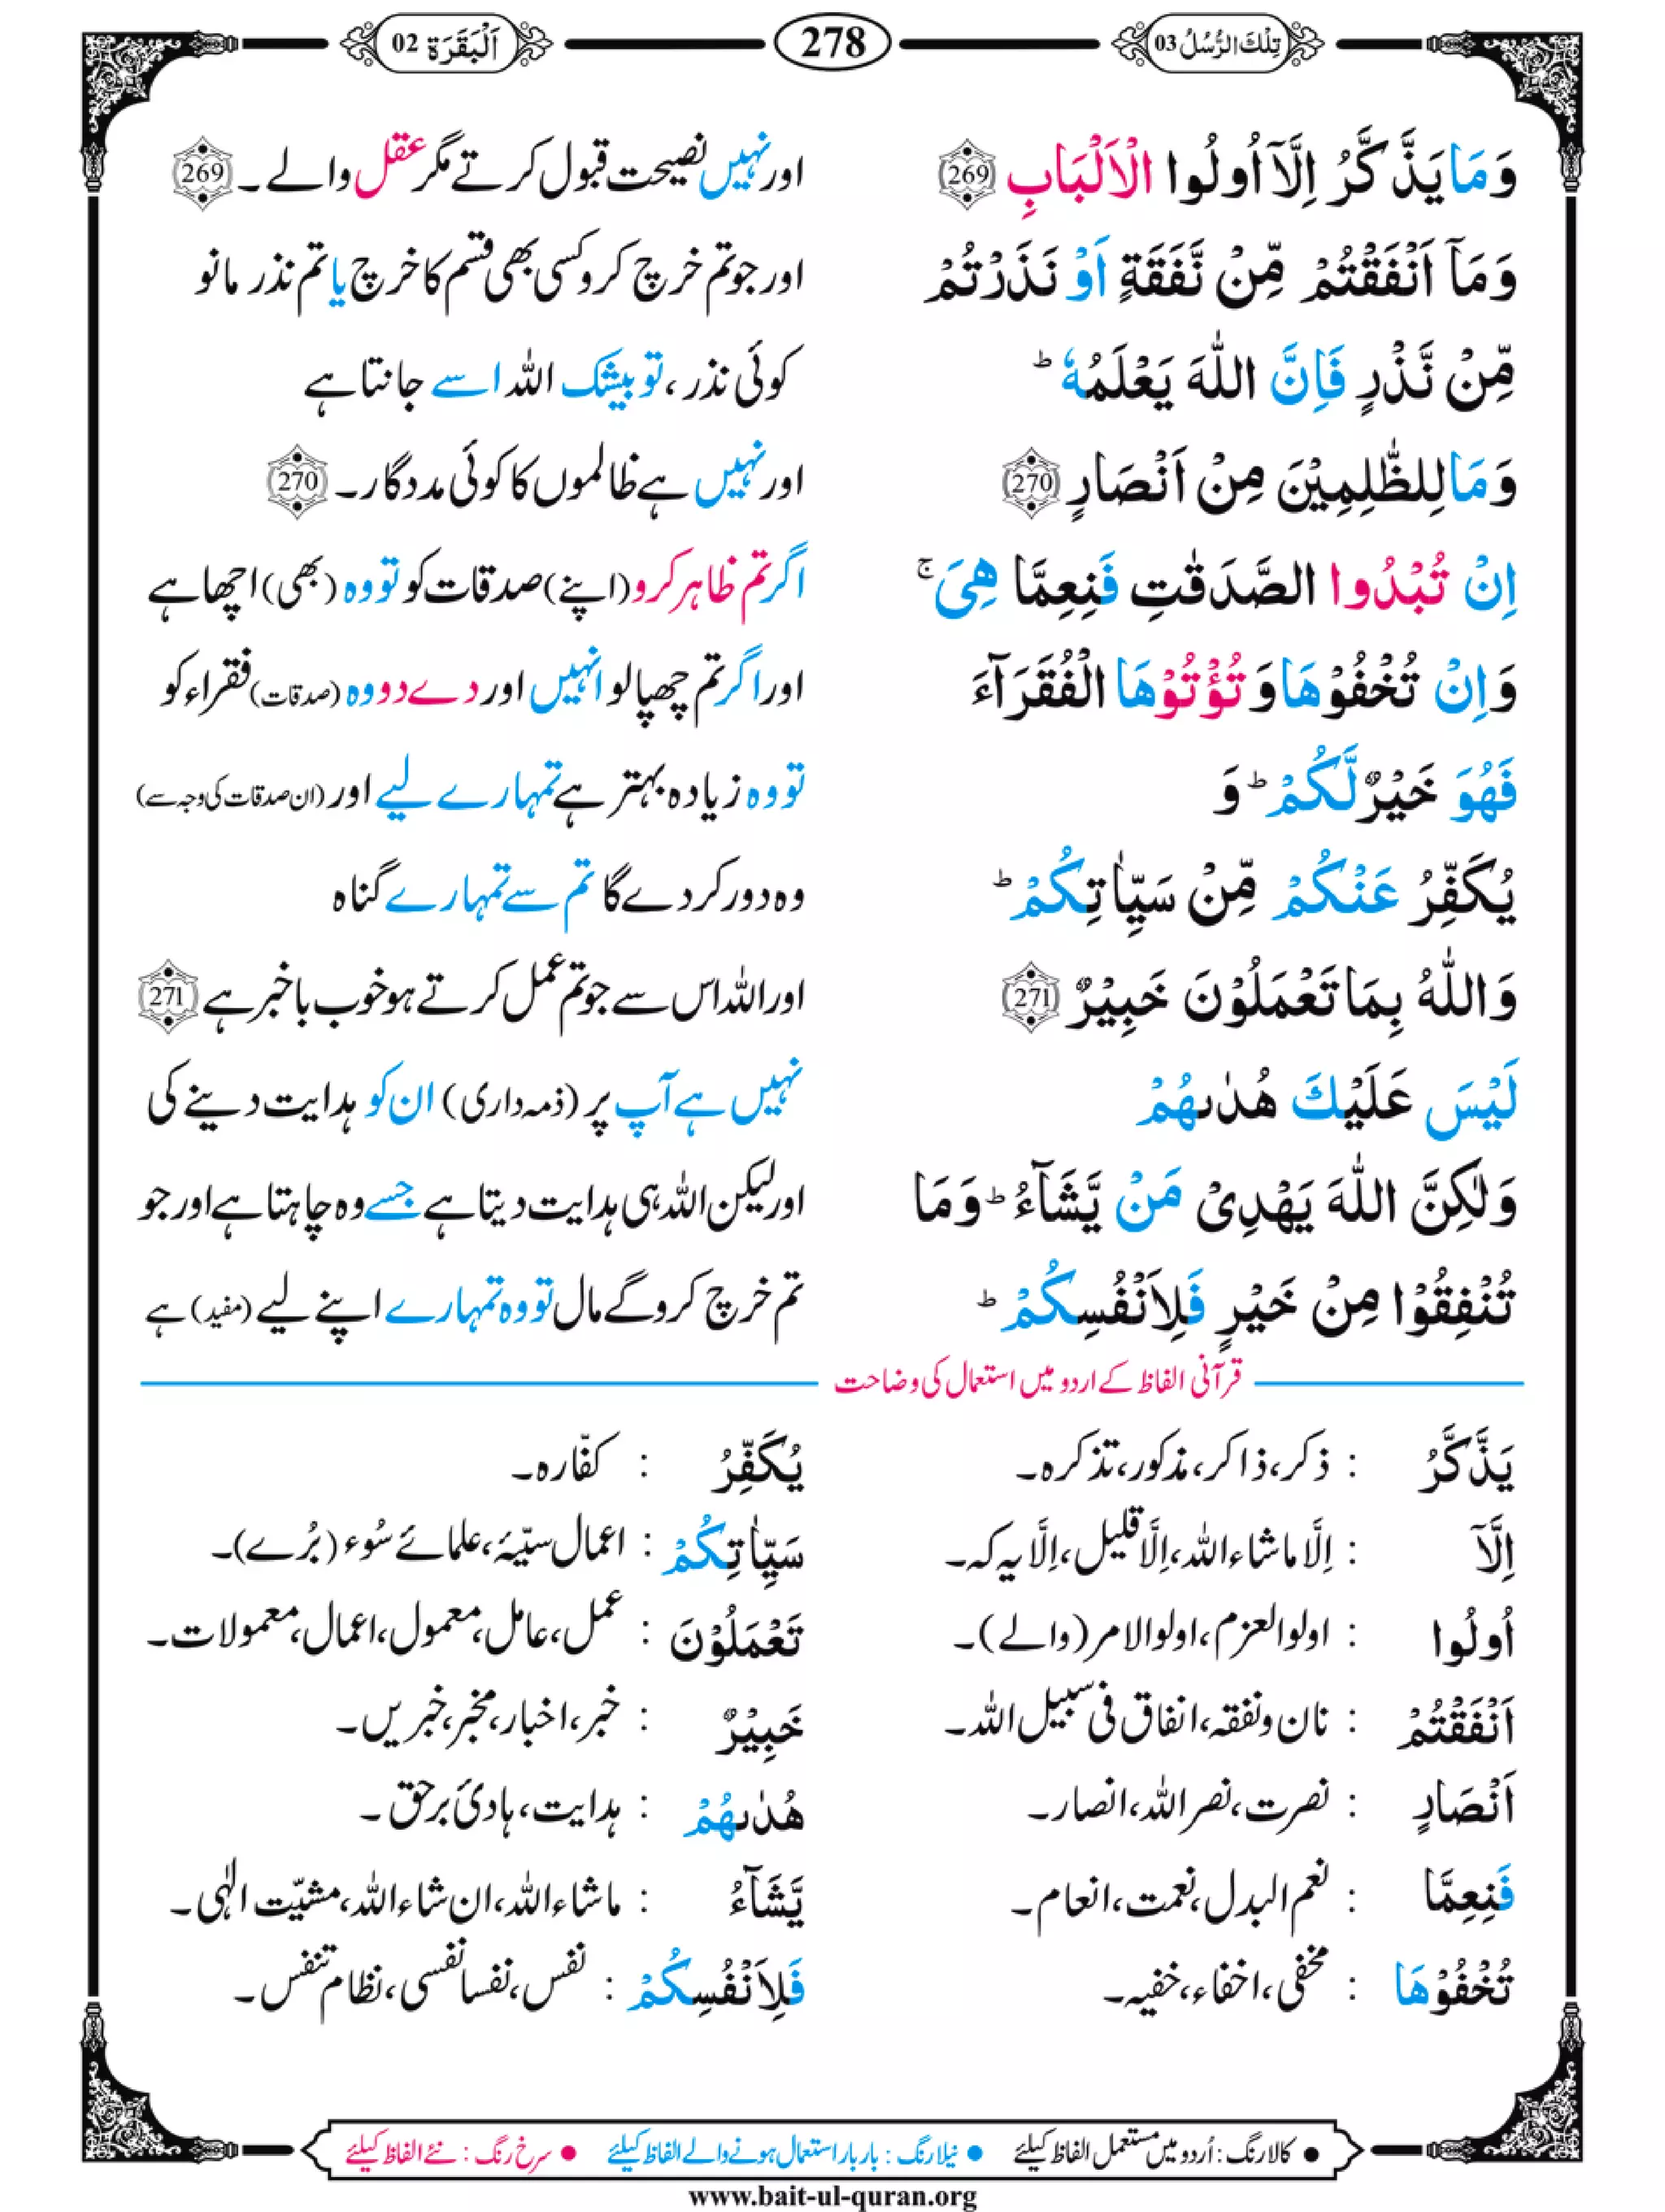 تِلْكَ الرُّسُلُ 03
278
اَلْبَقَرَة 02
وَمَا يَذَّكَّرُ اِلَّاۤ اُولُوا الْاَلْبَابِ 269
اور نہیں نصیحت قبول کرتے مگر عقل والے۔ 269
وَمَاۤ اَنْفَقْتُمْ مِّنْ نَّفَقَةٍ اَوْ نَذَرْتُمْ
اور جو تم خرچ کرو کسی بھی قسم کا خرچ یا تم نذر مانو
مِّنْ نَّذْرٍ فَاِنَّ اللّٰهَ يَعْلَمُهٗ ؕ
کوئی نذر، تو بیشک اللہ اسے جانتا ہے
وَمَا لِلظّٰلِمِيْنَ مِنْ اَنْصَارٍ 270
اور نہیں ہے ظالموں کا کوئی مددگار۔ 270
اِنْ تُبْدُوا الصَّدَقٰتِ فَنِعِمَّا هِىَ ۚ
اگر تم ظاہر کرو (اپنے) صدقات کو تو وہ (بھی) اچھا ہے
وَاِنْ تُخْفُوْهَا وَتُؤْتُوْهَا الْفُقَرَآءَ
اور اگر تم چھپا لو انہیں اور دے دو وہ (صدقات) فقراء کو
فَهُوَ خَيْرٌ لَّكُمْ ؕ وَ
تو وہ زیادہ بہتر ہے تمہارے لیے اور (ان صدقات کی وجہ سے)
يُكَفِّرُ عَنْكُمْ مِّنْ سَيِّاٰتِكُمْ ؕ
وہ دور کر دے گا تم سے تمہارے گناہ
وَاللّٰهُ بِمَا تَعْمَلُوْنَ خَبِيْرٌ 271
اور اللہ اس سے جو تم عمل کرتے ہو خوب باخبر ہے 271
لَيْسَ عَلَيْكَ هُدٰىهُمْ
نہیں ہے آپ پر (ذمہ داری) ان کو ہدایت دینے کی
وَلٰكِنَّ اللّٰهَ يَهْدِىْ مَنْ يَّشَآءُ ؕ وَمَا
اور لیکن اللہ ہی ہدایت دیتا ہے جسے وہ چاہتا ہے اور جو
تُنْفِقُوْا مِنْ خَيْرٍ فَلِاَنْفُسِكُمْ ؕ
تم خرچ کرو گے مال تو وہ تمہارے اپنے لیے (مفید) ہے
قرآنی الفاظ کے اردو میں استعمال کی وضاحت
يَذَّكَّرُ : ذکر، ذاکر، مذکور، تذکرہ۔
يُكَفِّرُ : کفّارہ۔
اِلَّاۤ : اِلَّا ماشاء اللہ، اِلَّا قلیل، اِلَّا یہ کہ۔
سَيِّاٰتِكُمْ : اعمال سیّئہ، علمائے سُوء (بُرے)۔
اُولُوا : اولوالعزم، اولوالامر (والے)۔
تَعْمَلُوْنَ : عمل، عامل، معمول، اعمال، معمولات۔
اَنْفَقْتُمْ : نان و نفقہ، انفاق فی سبیل اللہ۔
خَبِيْرٌ : خبر، اخبار، مخبر، خبریں۔
اَنْصَارٍ : نصرت، نصر اللہ، انصار۔
هُدٰىهُمْ : ہدایت، ہادئ برحق۔
فَنِعِمَّا : نعم البدل، نعمت، انعام۔
يَّشَآءُ : ماشاء اللہ، ان شاء اللہ، مشیّت الٰہی۔
تُخْفُوْهَا : مخفی، اخفاء، خفیہ۔
فَلِاَنْفُسِكُمْ : نفس، نفسا نفسی، نظام تنفس۔
● کالا رنگ : اُردو میں مستعمل الفاظ کیلئے ● نیلا رنگ : بار بار استعمال ہونے والے الفاظ کیلئے ● سرخ رنگ : نئے الفاظ کیلئے
www.bait-ul-quran.org